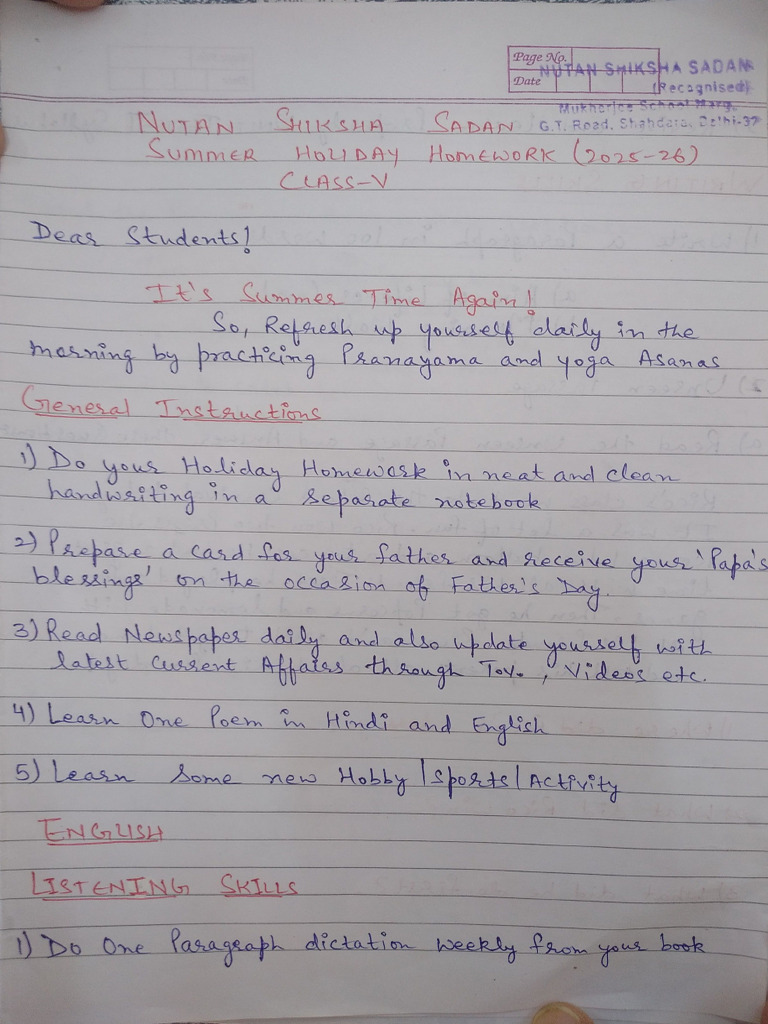 Page No.
Date
NUTAN SHIKSHA SADAN
(Recognised)
Mukherjee School Marg,
G.T. Road, Shahdara, Delhi-32
NUTAN SHIKSHA SADAN
SUMMER HOLIDAY HOMEWORK (2025-26)
CLASS-V
Dear Students!
It's Summer Time Again!
So, Refresh up yourself daily in the
morning by practicing Pranayama and yoga Asanas
General Instructions
1) Do your Holiday Homework in neat and clean
handwriting in a separate notebook
2) Prepare a card for your father and receive your 'Papa's
blessings' on the occasion of Father's Day.
3) Read Newspaper daily and also update yourself with
latest Current Affairs through T.V. , Videos etc.
4) Learn One Poem in Hindi and English
5) Learn Some new Hobby|Sports|Activity
ENGLISH
LISTENING SKILLS
1) Do One Paragraph dictation weekly from your book